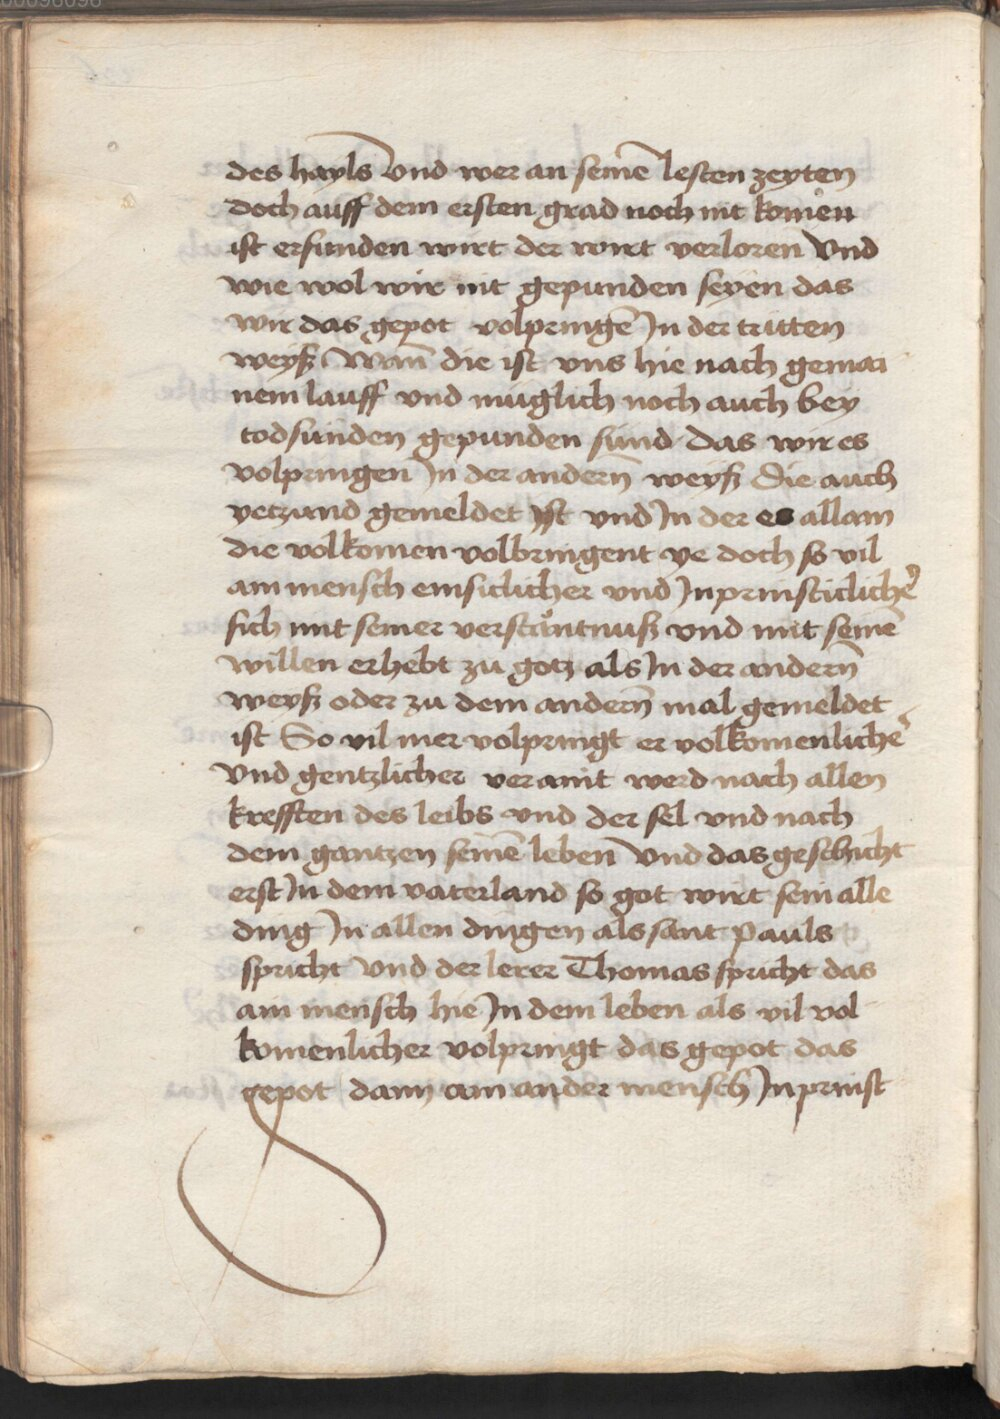 des hayls Vnd wer an seinē lesten zeyten
doch auff dem ersten grad noch nit komen
ist erfunden wirt der wirt verloren Vnd
wie wol wir nit gepunden seyen das
wir das gepot volpringē Jn der tritten
weyß Wañ die ist vns hie nach gemai
nem lauff vnd müglich noch auch bey
todsunden gepunden sund das wir es
volpringen Jn der andern̄ weyß Die auch
yetzund gemeldet ist vnd Jn der es allain
die volkomen volbringent ye doch so vil
ain mensch emsiclicher vnd Jnprinsticlichē
sich mit seiner verstäntnuß vnd mit seinē
willen erhebt zu gotz als Jn der andern̄
weyß oder zu dem andern̄ mal gemeldet
ist So vil mer volpringt er volkomenlichē
Vnd gentzlicher veraint werd nach allen
krefften des leibs vnd der sel vnd nach
dem gantzen seinē leben Vnd das geschicht
erst Jn dem vaterland so got wirt sein alle
ding Jn allen dingen als sant Pauls
spricht Vnd der lerer Thomas spricht das
ain mensch hie Jn dem leben als vil vol
komenlicher volpringt das gepot das
gepot dann ain ander mensch Jnprinst